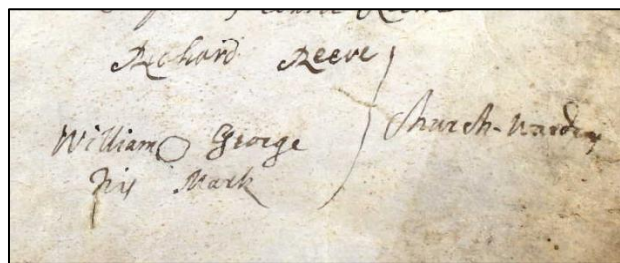 Richard Reeve
William George
his Mark
Church-Wardens